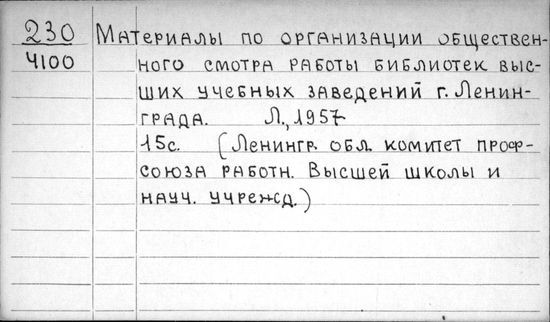 230 Материалы по организации обществен-
4100 ного смотра работы библиотек выс-
ших учебных заведений г. Ленин-
града. Л., 1957
15с. (Ленингр. обл. комитет проф-
союза работн. Высшей школы и
науч. учрежд.)